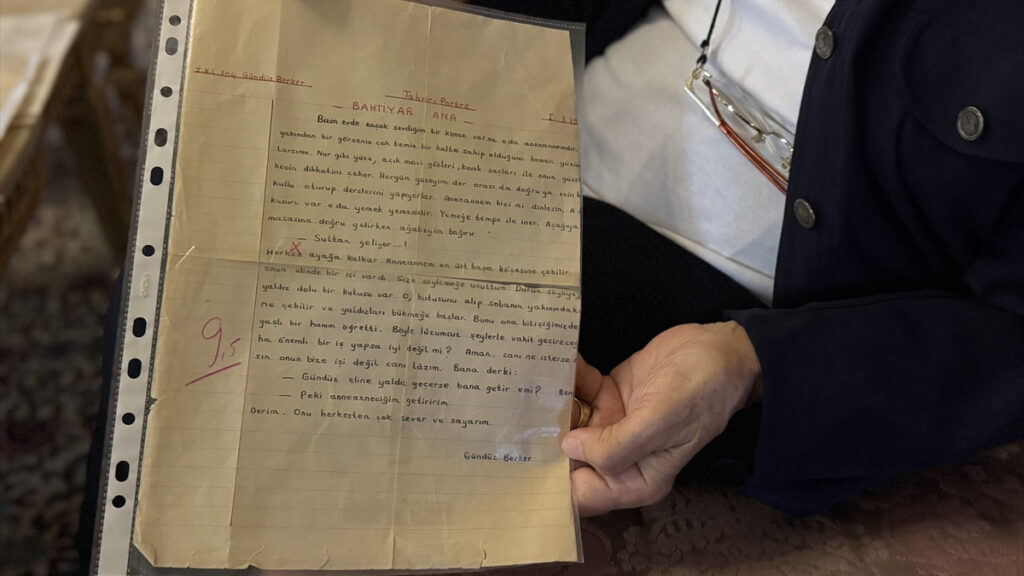 I.K.L 204 Gündüz Berker
Tahrici Portre
— BAHTİYAR ANA —
I. S 19
Bizim evde ençok sevdiğim bir kimse varsa oda anneannemdir
yakından bir görseniz çok temiz bir kalbe sahip olduğunu hemen
larsınız. Nur gibi yüzü, açık mavi gözleri, saçları, ile onun
kesin dikkatini çeker. Hergün gezeyim der orası da doğru ya evin
kullu oturup derslerini yapıyorlar. Anneannem bizi mi dinlesin. A
kusuru var oda yemek yemesidir. Yemeğe tempo ile iner. Aşağıya
masasına doğru gelirken ağabeyim bağırır.
— Sultan geliyor...!
Herkes ayağa kalkar. Anneannem en üst başa köşesine çekilir.
onun elinde bir işi vardı. Size söylemeğe unuttum. Durun söyliye
yaldız dolu bir kutusu var. O, kutusunu alıp sobanın yakınındaki
ne çekilir ve yaldızları bükmeğe başlar. Bunu ona bitişiğimizde
yaşlı bir hanım öğretti. Böyle lüzumsuz şeylerle vakit geçirece
ha önemli bir iş yapsa iyi değil mi? Aman.. canı ne isterse
sın onun bize işi değil canı lâzım. Bana derki:
— Gündüz eline yaldız geçerse bana getir emi? Ben
— Peki anneanneciğim getiririm
Derim. Onu herkesten çok sever ve sayarım.
Gündüz Berker
9,5